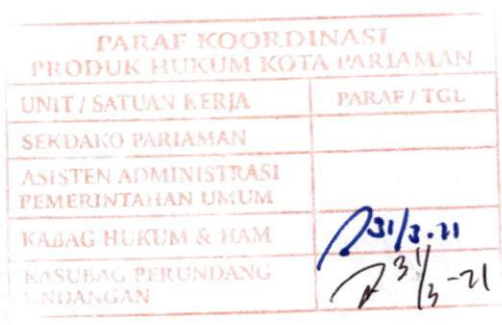 PARAF KOORDINASI
PRODUK HUKUM KOTA PARIAMAN
UNIT / SATUAN KERJA PARAF / TGL
SEKDAKO PARIAMAN
ASISTEN ADMINISTRASI
PEMERINTAHAN UMUM
KABAG HUKUM & HAM 31/3-21
KASUBAG PERUNDANG
UNDANGAN 31/3-21